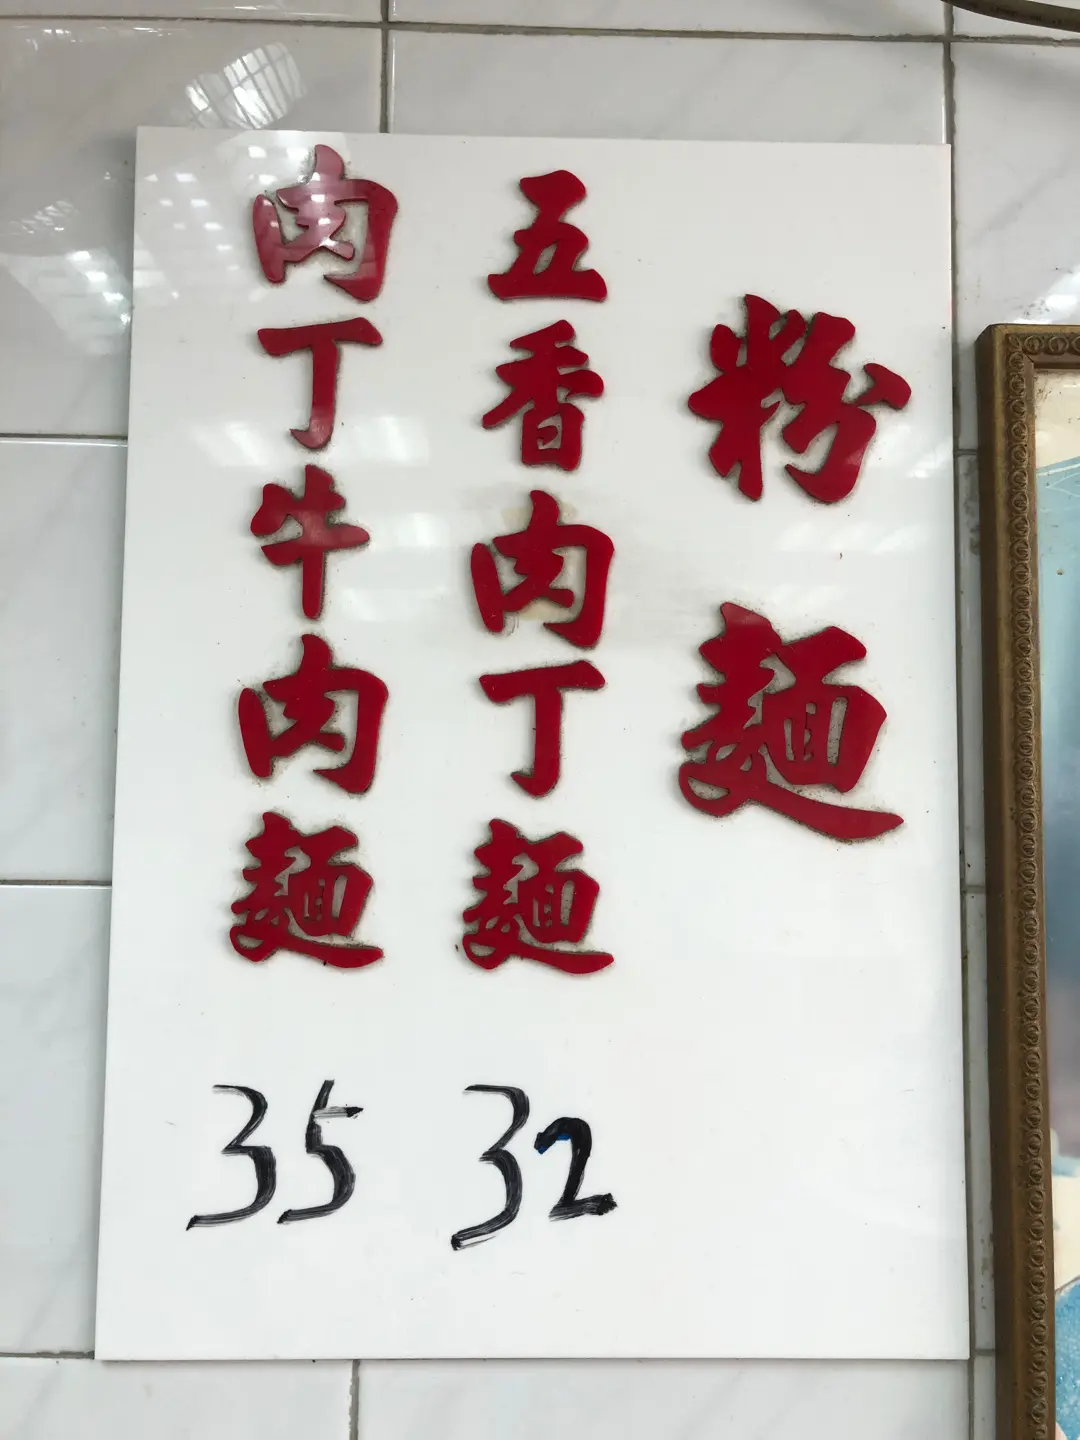 粉麵
五香肉丁麵 32
肉丁牛肉麵 35